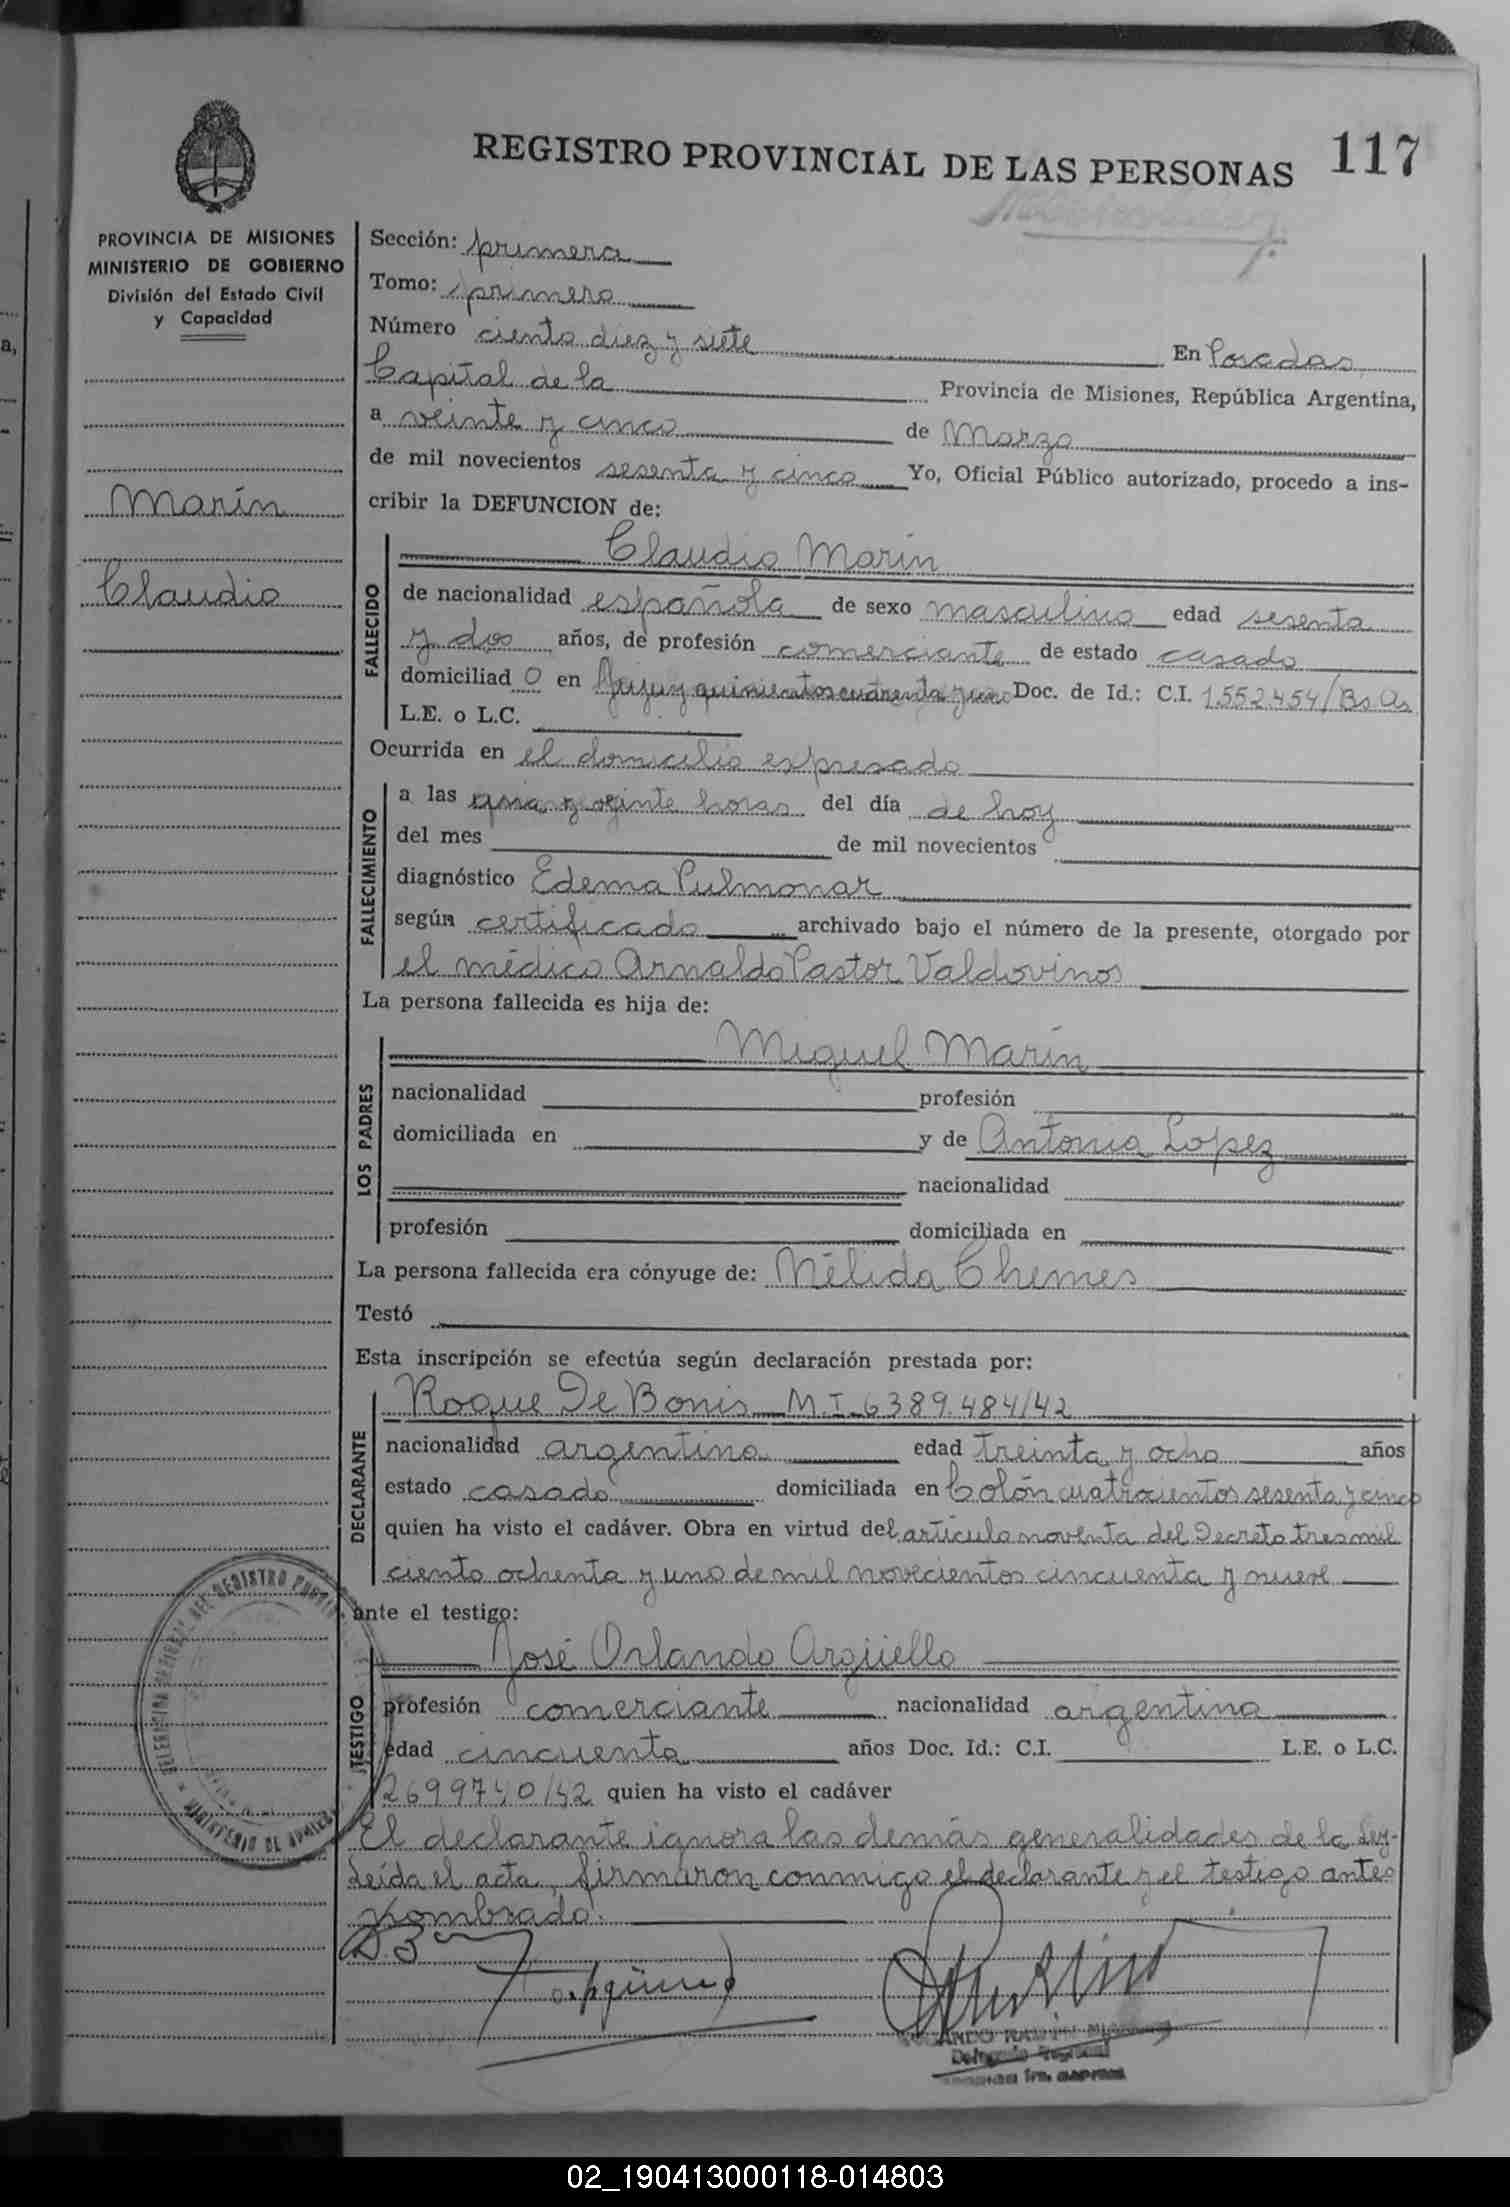 REGISTRO PROVINCIAL DE LAS PERSONAS 117
PROVINCIA DE MISIONES
MINISTERIO DE GOBIERNO
División del Estado Civil
y Capacidad
Marín
Claudio
Sección: primera
Tomo: primero
Número ciento diez y siete En Posadas
Capital de la Provincia de Misiones, República Argentina,
a veinte y cinco de Marzo
de mil novecientos sesenta y cinco Yo, Oficial Público autorizado, procedo a ins-
cribir la DEFUNCION de:
FALLECIDO
Claudio Marín
de nacionalidad española de sexo masculino edad sesenta
y dos años, de profesión comerciante de estado casado
domiciliad o en Jujuy quinientos cuarenta y uno Doc. de Id.: C.I. 1.552.454/Bs As
L.E. o L.C.
Ocurrida en el domicilio expresado
FALLECIMIENTO
a las una y veinte horas del día de hoy
del mes de mil novecientos
diagnóstico Edema Pulmonar
según certificado archivado bajo el número de la presente, otorgado por
el médico Arnaldo Pastor Valdovinos
La persona fallecida es hija de:
LOS PADRES
Miguel Marín
nacionalidad profesión
domiciliada en y de Antonia Lopez
nacionalidad
profesión domiciliada en
La persona fallecida era cónyuge de: Nélida Chemes
Testó
Esta inscripción se efectúa según declaración prestada por:
DECLARANTE
Roque De Bonis M.I. 6389.484/42
nacionalidad argentina edad treinta y ocho años
estado casado domiciliada en Colón cuatrocientos sesenta y cinco
quien ha visto el cadáver. Obra en virtud del artículo noventa del Decreto tres mil
ciento ochenta y uno de mil novecientos cincuenta y nueve
ante el testigo:
TESTIGO
José Orlando Argüello
profesión comerciante nacionalidad argentina
edad cincuenta años Doc. Id.: C.I. L.E. o L.C.
2699740/42 quien ha visto el cadáver
El declarante ignora las demás generalidades de la Ley-
Leída el acta, firmaron conmigo el declarante y el testigo antes
nombrado.
Delegado Regional
02_190413000118-014803